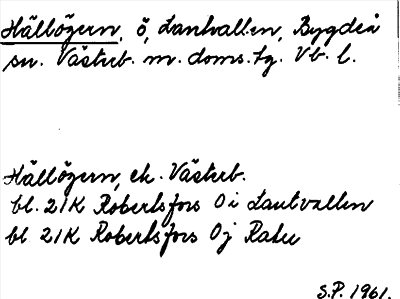 Hällögern, ö, Lantvallen, Bygdeå
sn. Västerb. m. doms.sg. Vb. l.
Hällögern, ek. Västerb.
bl. 21K Robertsfors 0 i Lantvallen
bl 21K Robertsfors 0j Ratu
S.P. 1961.